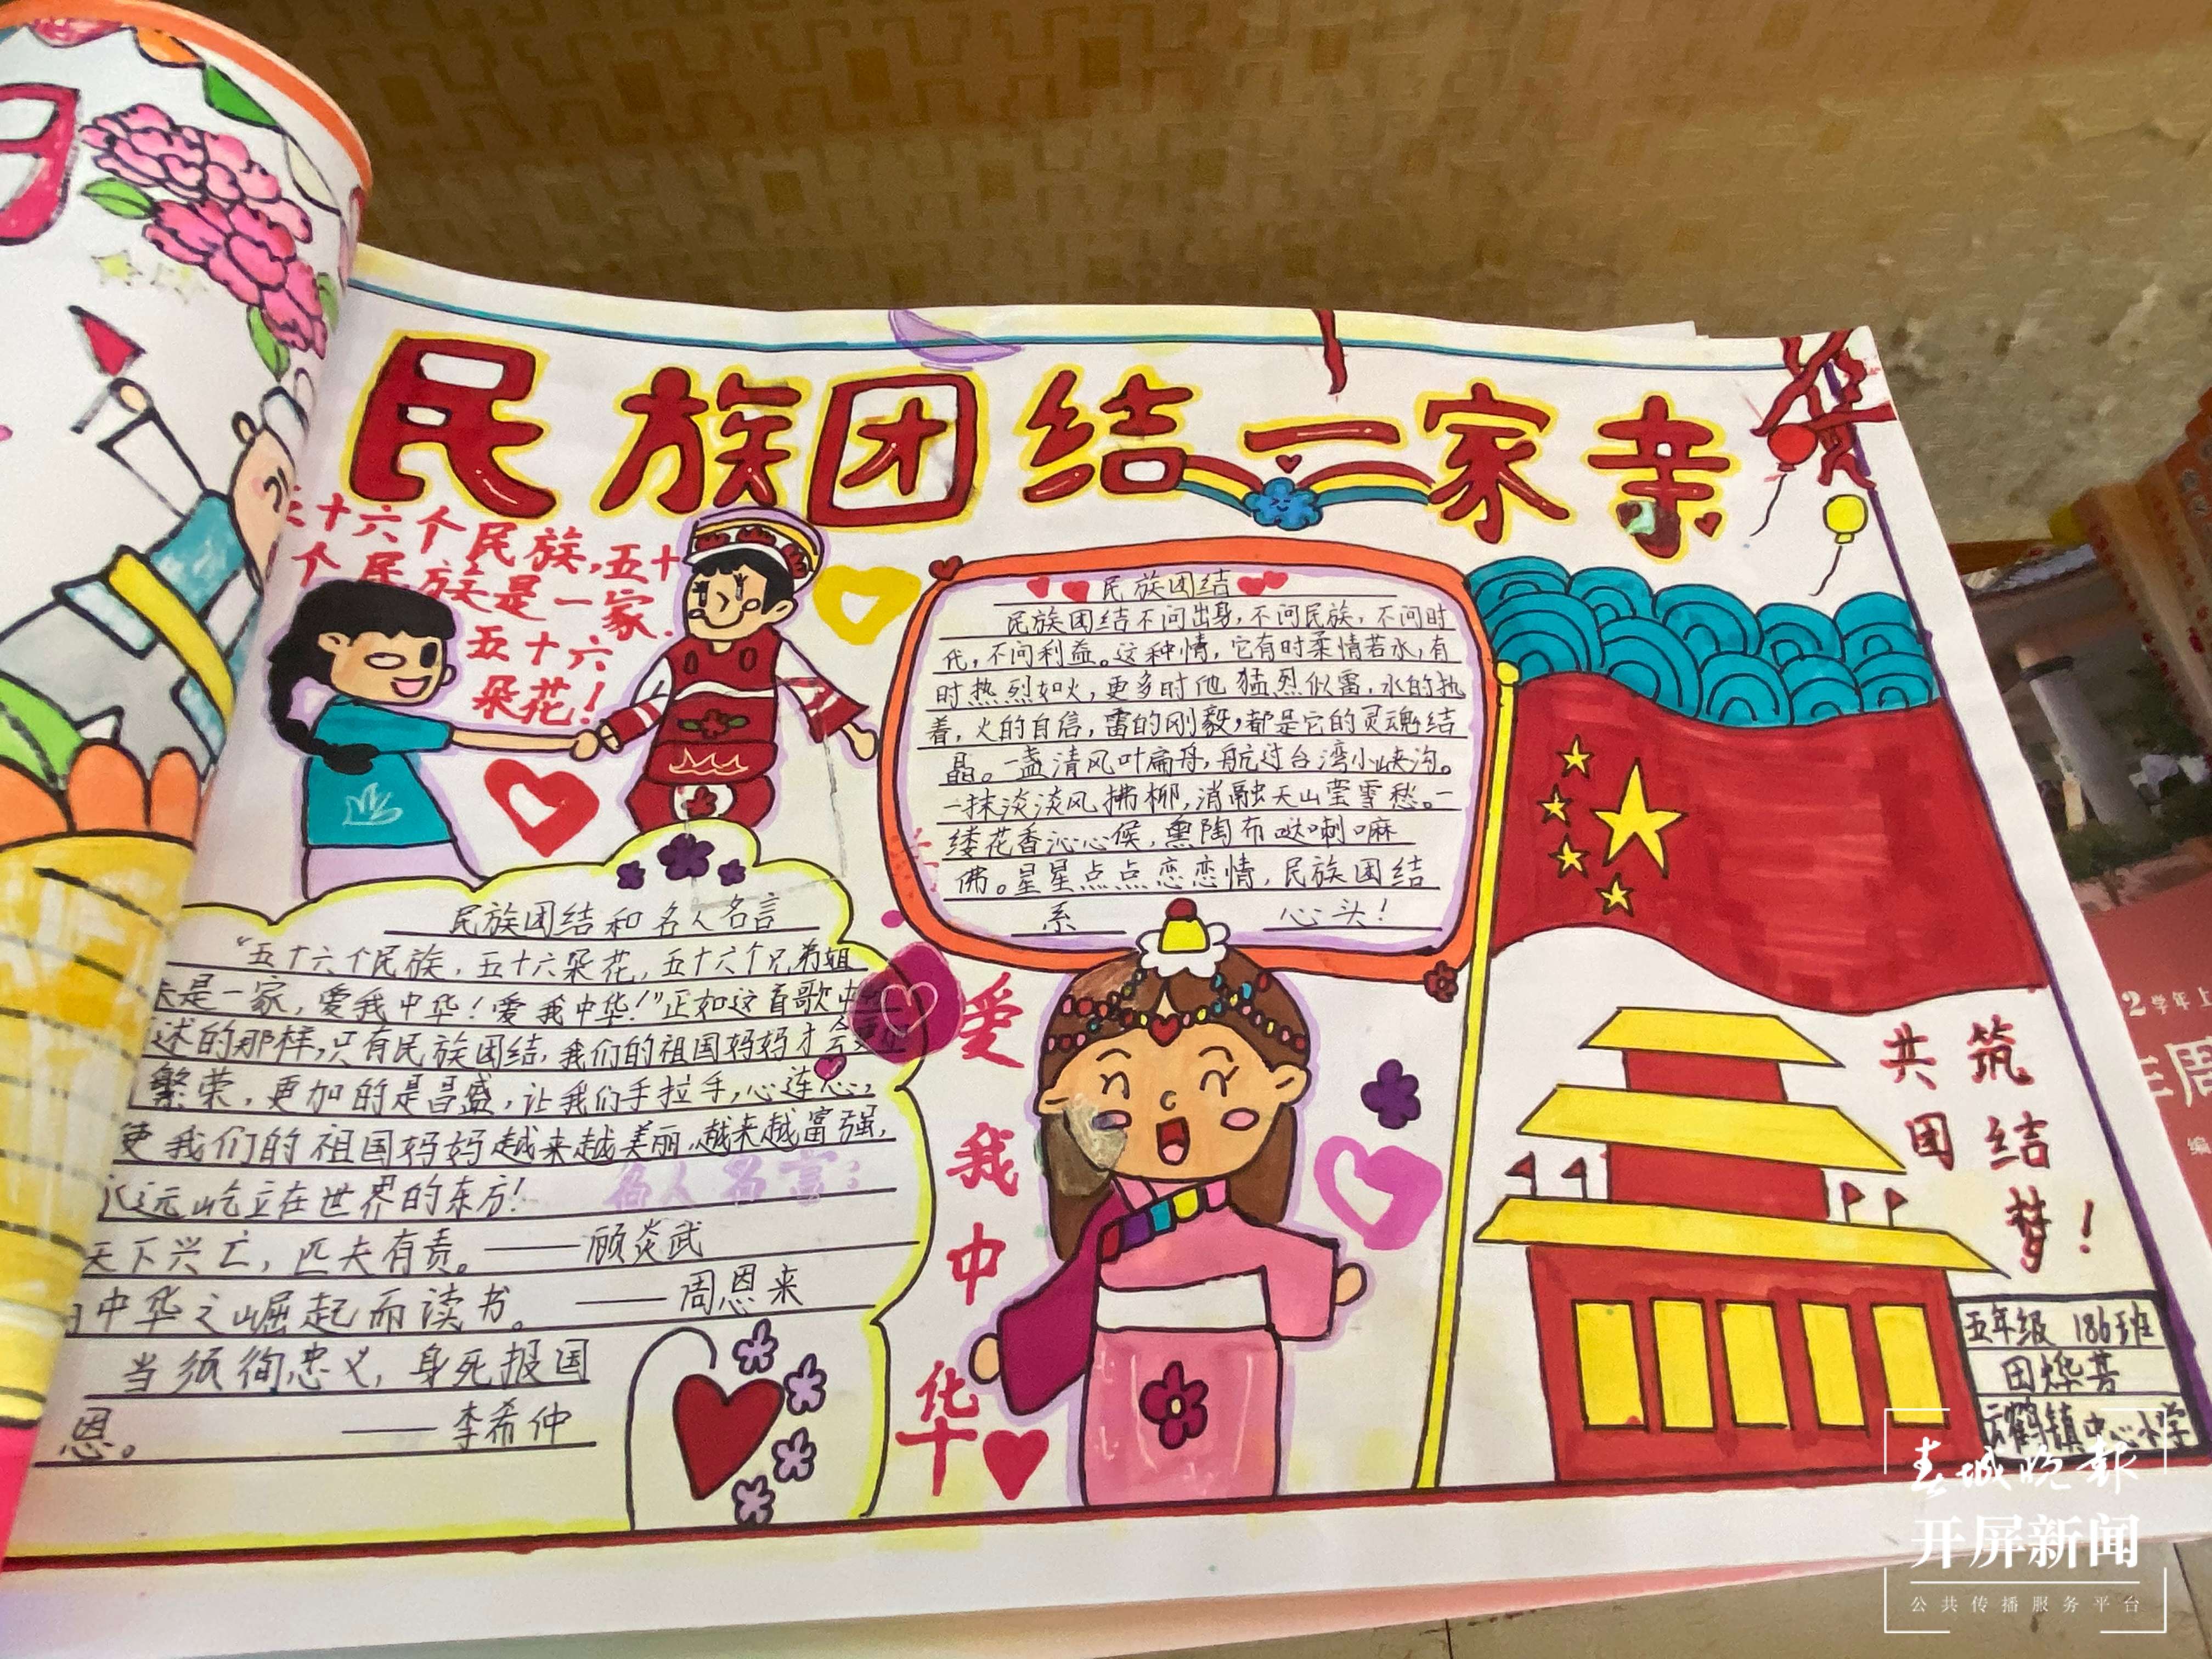 民族团结一家亲
十六个民族,五十
个民族是一家.
五十六
朵花!
民族团结
民族团结不问出身,不问民族,不问时
代,不问利益。这种情,它有时柔情若水,有
时热烈如火,更多时他猛烈似雷,水的执
着,火的自信,雷的刚毅,都是它的灵魂结
晶。一盏清风叶扁舟,航过台湾小峡沟。
一抹淡淡风拂柳,消融天山莹雪愁。一
缕花香沁心候,熏陶布哒喇嘛
佛。星星点点恋恋情,民族团结
系 心头!
民族团结和名人名言
"五十六个民族,五十六朵花,五十六个兄弟姐
是一家,爱我中华!爱我中华!"正如这首歌中
述的那样,只有民族团结,我们的祖国妈妈才会
繁荣,更加的是昌盛,让我们手拉手,心连心,
使我们的祖国妈妈越来越美丽,越来越富强,
永远屹立在世界的东方!
名人名言:
天下兴亡,匹夫有责。——顾炎武
中华之崛起而读书。——周恩来
当须徇忠义,身死报国
恩。——李希仲
爱
我
中
华
共筑
团结
梦!
五年级 186班
田烨芳
云鹤镇中心小学
2学年上
周
编
春城晚报
开屏新闻
公共传播服务平台